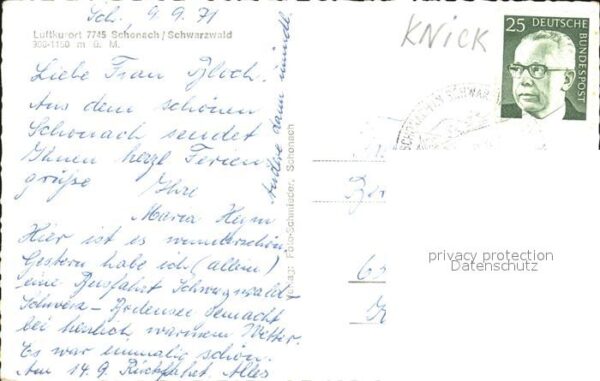 Sch., 9.9.71
Luftkurort 7745 Schonach / Schwarzwald
900-1150 m ü. M.
KNICK
25 DEUTSCHE BUNDESPOST
Liebe Frau Bloch.
Aus dem schönen
Schonach sendet
Ihnen herzl. Ferien
grüße Ihre
Maria Heym
Hier ist es wunderschön
Gestern habe ich (allein)
eine Busfahrt Schwarzwald-
Schweiz - Bodensee gemacht
bei herrlich warmem Wetter.
Es war einmalig schön.
Am 14.9. Rückfahrt. Alles
Andere dann mündl.
Verlag: Foto-Schmieder, Schonach
privacy protection
Datenschutz